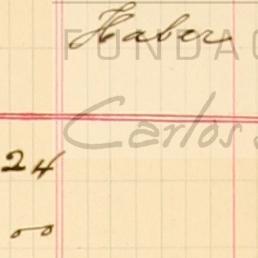 Haber
FUNDAC
Carlos S
24
00